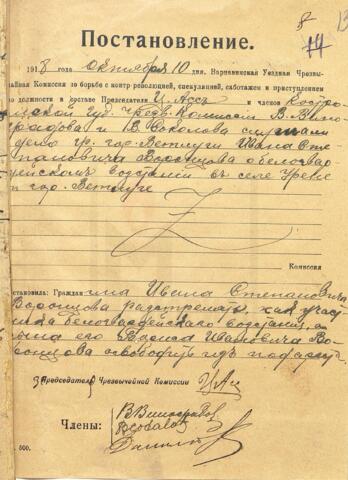 8
13
14
Постановление.
1918 года октября 10 дня. Варнавинская Уездная Чрезвы-
чайная Комиссия по борьбе с контр революцией, спекуляцией, саботажем и приступлением
по должности в составе Председателя И. Асс и членов Костро-
мской Губ. Чрезв. Комиссии В. Вино-
градова и В. Соколова слушали
дело гр. гор. Ветлуги Ивана Сте-
пановича Воронцова о белогвар-
дейском возстании въ селе Урене
и гор. Ветлуге
Комиссия
становила: Граждан ина Ивана Степановича
Воронцова разстрелять, как участ-
ника белогвардейского возстания, а
сына его Бориса Ивановича Во-
ронцова освободить из под ареста.
Председатель Чрезвычайной Комиссии И. Асс
Члены:
В Виноградов
500.